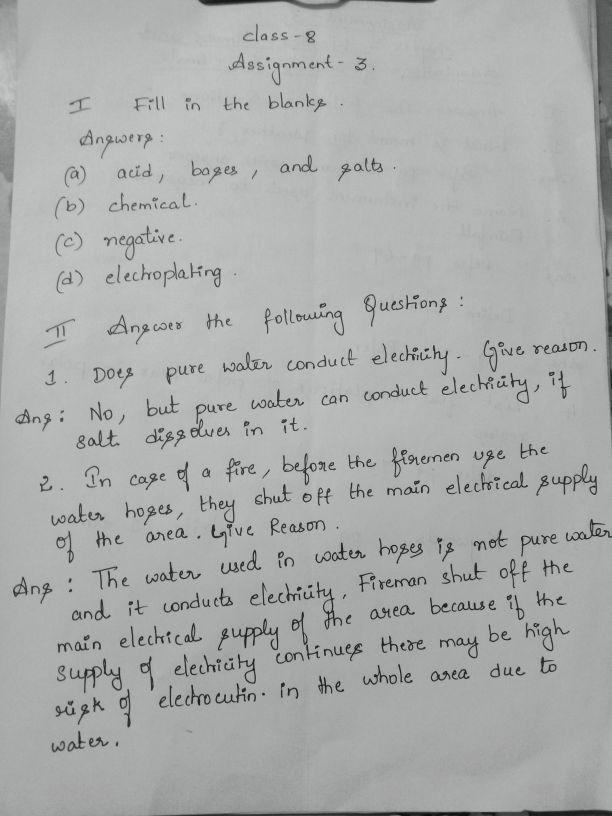 class - 8
Assignment - 3.
I Fill in the blanks .
Answers :
(a) acid, bases, and salts .
(b) chemical.
(c) negative.
(d) electroplating .
II Answer the following Questions :
1. Does pure water conduct electricity. Give reason.
Ans : No, but pure water can conduct electricity, if
salt dissolves in it.
2. In case of a fire, before the firemen use the
water hoses, they shut off the main electrical supply
of the area. Give Reason .
Ans : The water used in water hoses is not pure water
and it conducts electricity, Fireman shut off the
main electrical supply of the area because if the
supply of electricity continues there may be high
risk of electrocutin. in the whole area due to
water.